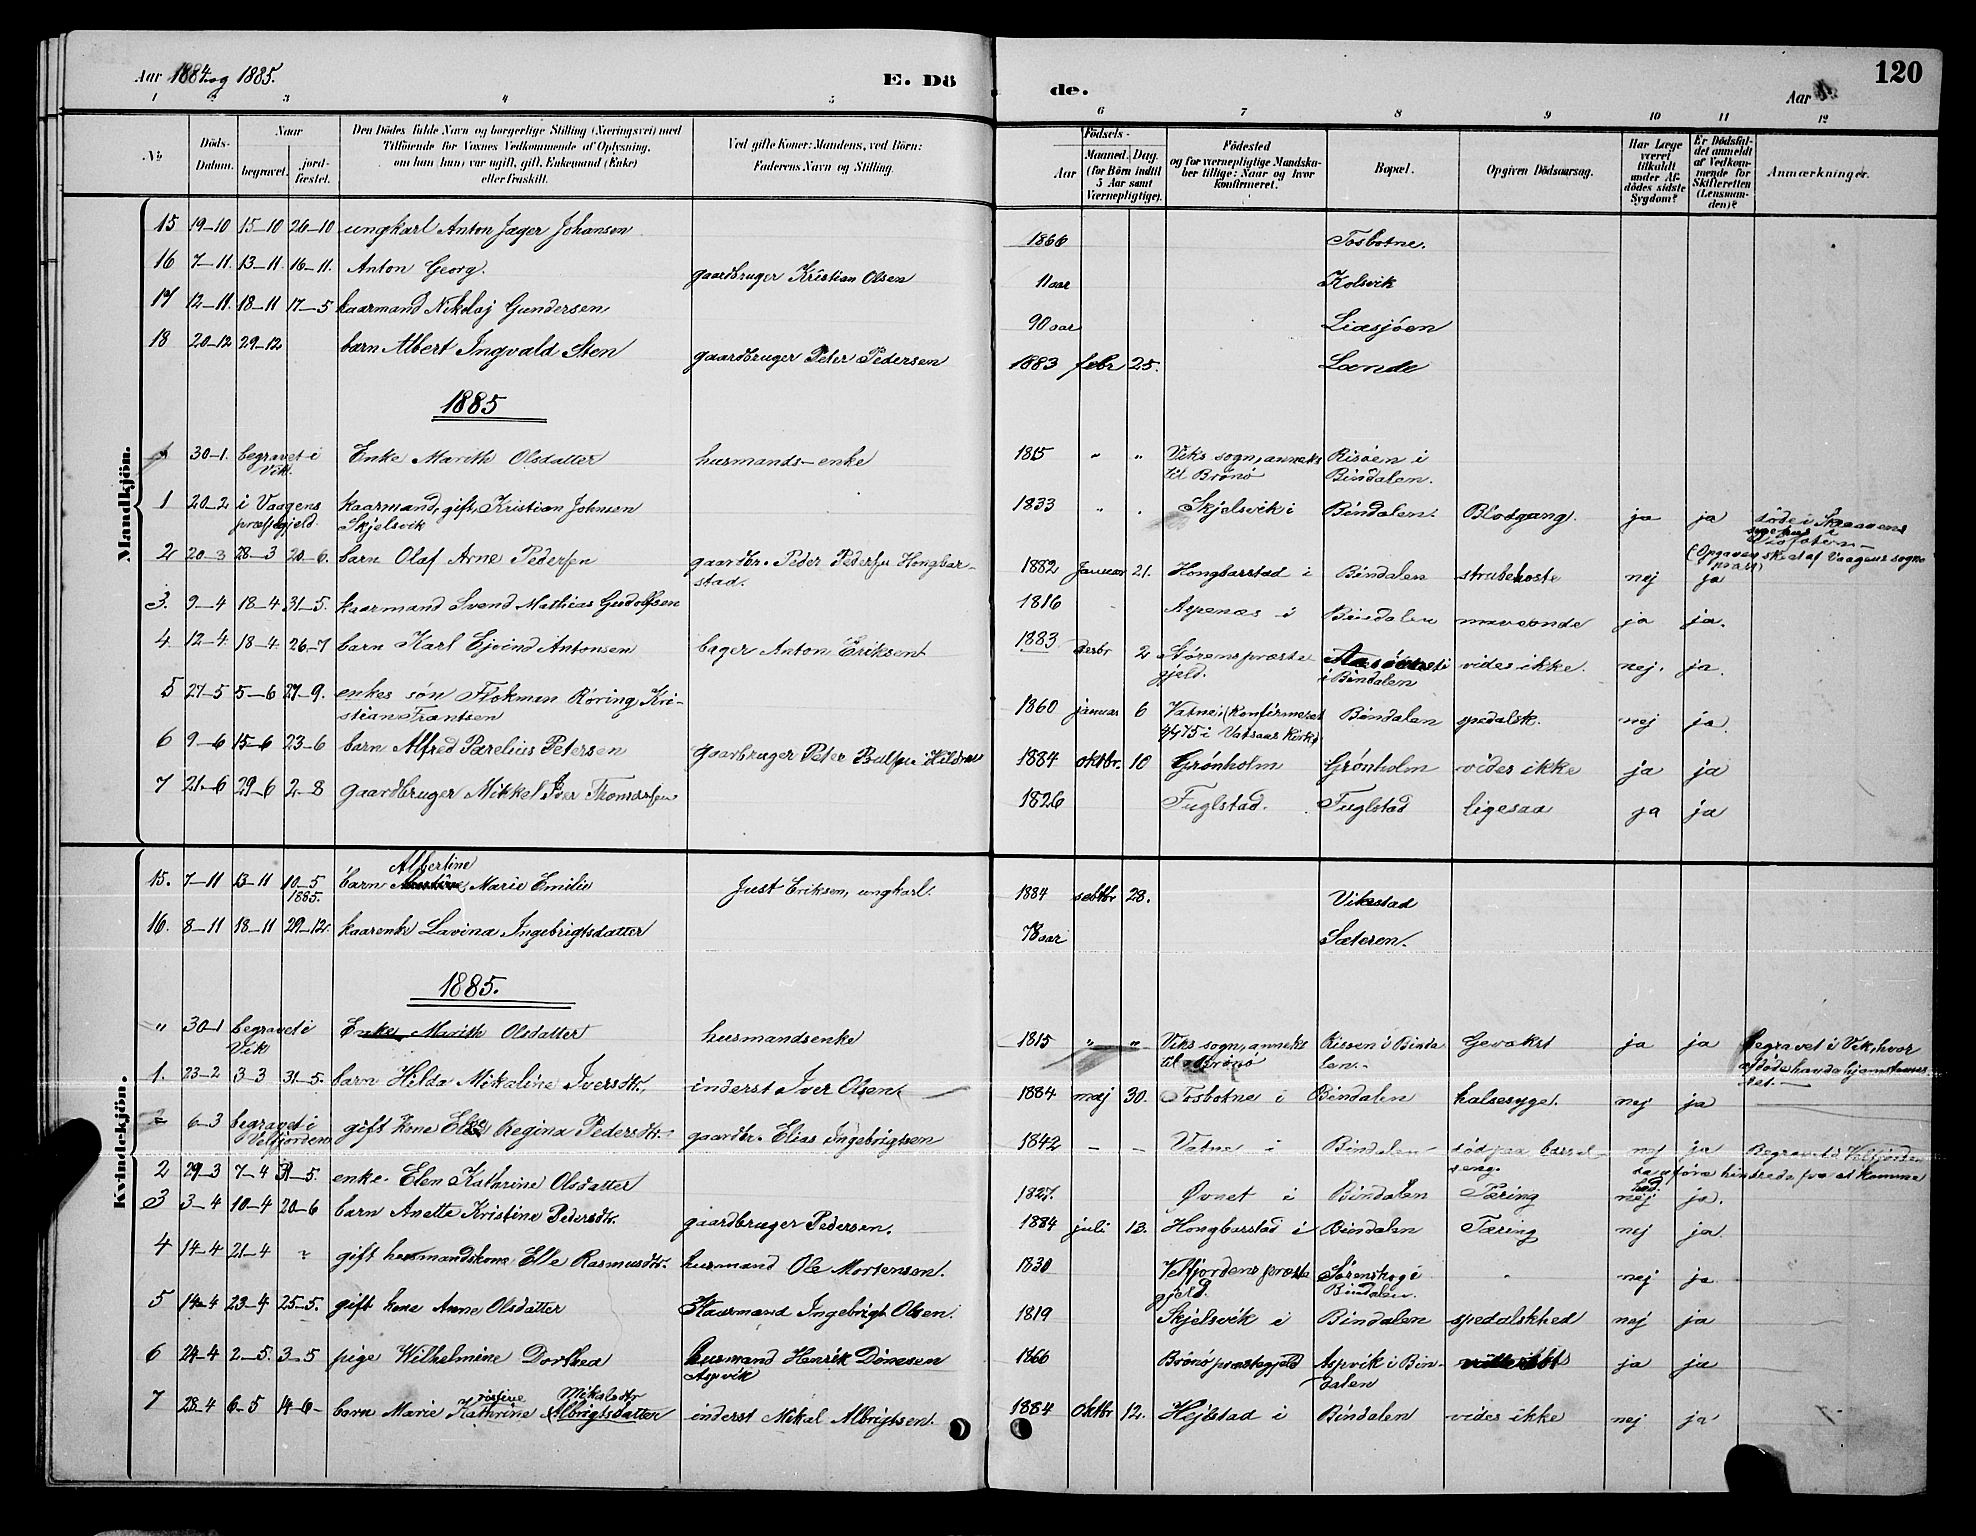 Aar 1884 og 1885.
E. Dö
de.
Aar
120
1 2 3 4 5 6 7 8 9 10 11 12
No
Döds-Datum.
Naar
begravet.
jord-fæstet.
Den Dödes fulde Navn og borgerlige Stilling (Næringsvei) med
Tilföiende for Voxnes Vedkommende af Oplysning,
om han (hun) var ugift, gift, Enkemand (Enke)
eller fraskilt.
Ved gifte Koner: Mandens, ved Börn:
Faderens Navn og Stilling.
Födsels-
Aar
Maaned. Dag.
(for Börn indtil
5 Aar samt
Værnepligtige).
Födested
og for værnepligtige Mandska-
ber tillige: Naar og hvor
konfirmeret.
Bopæl.
Opgiven Dödsaarsag.
Har Læge
været
tilkaldt
under Af-
dödes sidste
Sygdom?
Er Dödsfal-
det anmeldt
af Vedkom-
mende for
Skifteretten
(Lensman-
den)?
Anmærkninger.
Mandkjön.
15 19-10 15-10 26-10 ungkarl Anton Jæger Johansen 1866 Tosbotne.
16 7-11 13-11 16-11. Anton Georg. gaardbruger Kristian Olsen 11 aar Kolsvik
17 12-11. 18-11 17-5 kaarmand Nikolaj Gundersen 90 aar Liasjøen
18 20-12 29-12 barn Albert Ingvald Sten gaardbruger Peter Pedersen 1883 febr 25. Lande
1885
30-1. begravet i Vik. Enke Marith Olsdatter husmands-enke 1815 " " Viks sogn, anneks Risøen i
til Brønø Bindalen.
1 20-2 i Vaagens kaarmand, gift, Kristian Johnsen 1833 " " Skjelsvik i Bindalen. Blodgang. ja ja døde i Skraavens
præstegjeld. Skjelsvik sygehus i
(Opgaven skeet af Vaagens sogne
2 20-3 28-3 20-6. barn Olaf Arne Pedersen gaardbr. Peder Pedersen Hongbar-
stad. 1882 Januar 21. Hongbarstad i Bindalen strubehoste nej ja
3. 9-4 18-4 31-5. kaarmand Svend Mathias Gudolfsen 1816 Aspenæs i Bindalen maveonde ja ja.
4. 12-4. 18-4. 26-7 barn Karl Ejvind Antonsen bager Anton Eriksen 1883 desbr 2 Størens præste vides ikke. nej. ja.
gjeld. i Bindalen
5 27-5 5-6 27-9. enkes søn Flokman Røring Kri-
stian Frantsen 1860 januar 6 Vatne, (Konfirmeret Bindalen spedalsk. nej ja.
4/7 75 i Vatsaas Kirke
6 9-6 15-6 23-6 barn Alfred Parelius Petersen gaarbruger Peter 1884 oktbr. 10 Grønholm Grønholm vides ikke ja ja
7 21-6 29-6 2-8 gaardbruger Mikkel Iver Thomassen 1826 Fuglstad. Fuglstad ligesaa ja ja
Kvindekjön.
Albertine
15. 7-11 13-11 10-5 barn Marie Emilie Just Eriksen, ungkarl. 1884 sebtbr 28. Vikestad
1885.
16. 8-11 18-11 29-12. kaarenke Lavina Ingebrigtsdatter 78 aar Sæteren.
1885.
" 30-1 begravet i Enke Marith Olsdatter husmandsenke 1815 " " Viks sogn, anneks Rissen i Binda Gevækst ja ja begravet i Vik, hvor
Vik til Brønø len.-
1. 23-2 3-3 31-5. barn Hilda Mikaline Iversdtr. inderst Iver Olsen. 1884 maj 30. Tosbotne i Bindalen halsesyge. nej ja
6-3 begravet i gift kone Regina Pedersdtr. gaardbr. Elias Ingebrigtsen 1842 - - Vatne i Bindalen død paa barsel- nej ja Begravet i Velfjorden
Velfjorden seng. føre hindrede fra at komme
2 29-3 7-4 31-5. enke. Elen Kathrine Olsdatter 1827. Øvnet i Bindalen Tæring nej ja.
3 3-4 10-4 20-6 barn Anette Kristine Pedersdtr. gaardbruger Pedersen. 1884 juli 13. Hongbarstad i Bindalen Tæring nej ja
4 14-4 21-4 gift husmandskone Elle Rasmusdtr. husmand Ole Mortensen. 1830 Velfjordens præste Sørenskog i nej ja
gjeld. Bindalen.
5 14-4 23-4 25-5. gift kone Anne Olsdatter Kaarmand Ingebrigt Olsen. 1819 Skjelsvik i Bindalen spedalskhed nej ja
6 24-4 2-5. 3-5 pige Wilhelmine Dorthea husmand Henrik Dønesen 1866 Brønø præstegjeld Aspvik i Bin- ja ja
Aspvik dalen
7 28-4 6-5 14-6- barn Marie Kathrine Albrigtsdatter inderst Mikal Albrigtsen. 1884 oktbr 12. Hejlstad i Bindalen vides ikke nej ja
Mikalsdtr